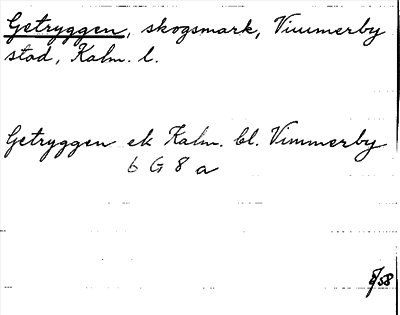 Getryggen, skogsmark, Vimmerby
stad, Kalm. l.
Getryggen ek Kalm. bl. Vimmerby
6 G 8 a
8/58